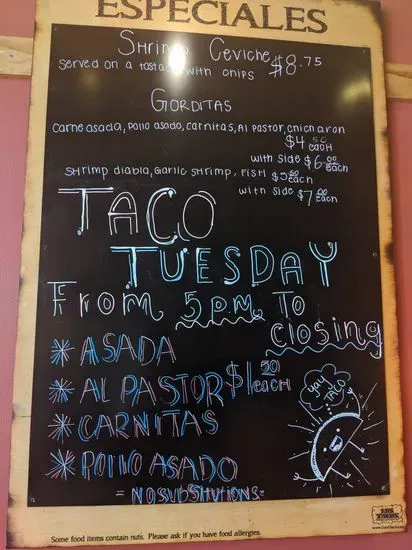 ESPECIALES
Shrimp Ceviche $8.75
served on a tostada with chips
GORDITAS
carne asada, pollo asado, carnitas, Al pastor, chicharon
$4 50 each
with side $6.00 each
shrimp diabla, Garlic shrimp, Fish $5.00 each
with side $7.00 each
TACO
TUESDAY
From 5 P.M. To
closing
* ASADA
* AL PASTOR $1 50 each
* CARNITAS
* POLLO ASADO
= NO SUBSTITUTIONS =
TACO
Some food items contain nuts. Please ask if you have food allergies.